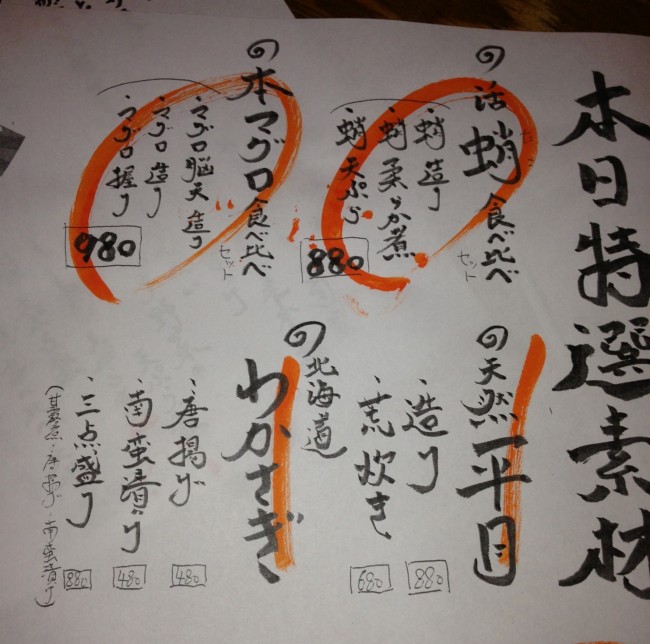 本日特選素材
活蛸食べ比べ
たこ
セット
・蛸造り
・蛸柔らか煮
・蛸天ぷら
880
本マグロ食べ比べ
セット
・マグロ脳天造り
・マグロ造り
・マグロ握り
980
天然平目
・造り
880
・荒炊き
680
北海道
わかさぎ
・唐揚げ
480
・南蛮漬け
480
・三点盛り
880
(甘露煮・唐揚げ・南蛮漬け)